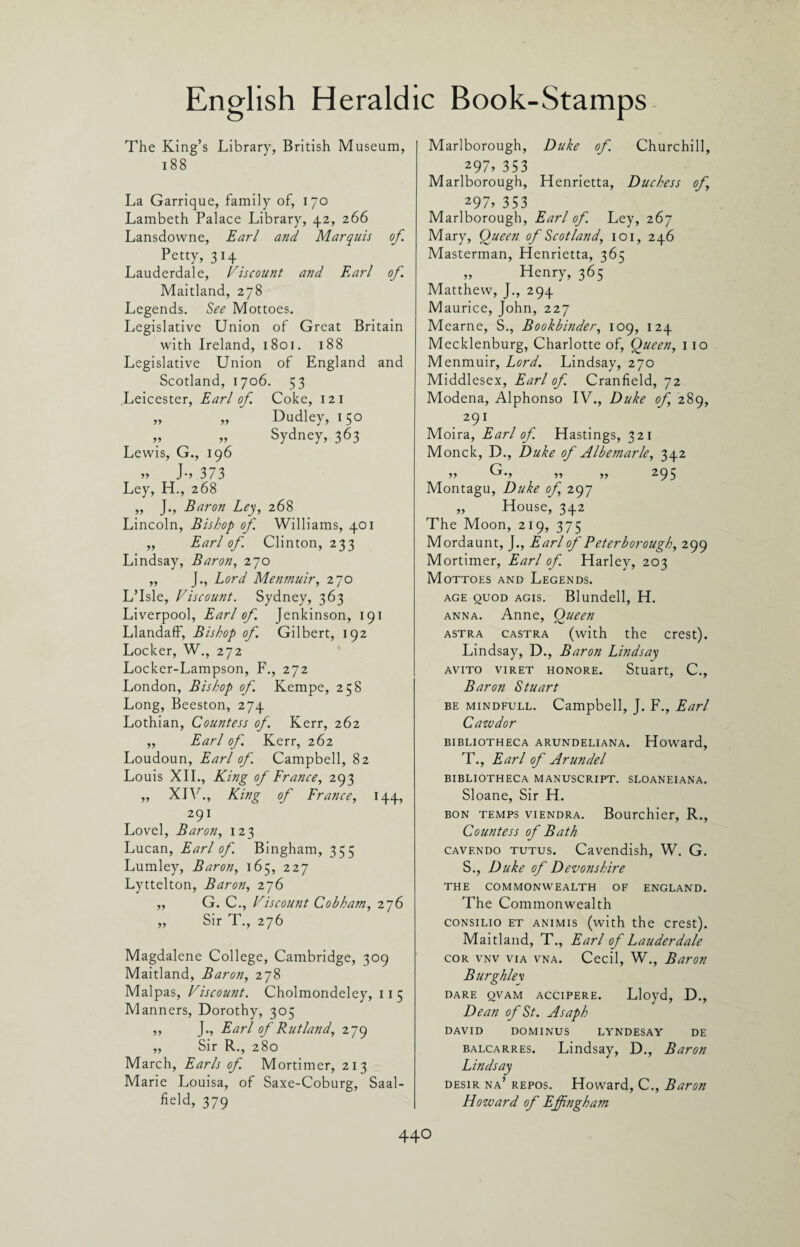 English Heraldic Book-Stamps
The King's Library, British Museum,
188
La Garrique, family of, 170
Lambeth Palace Library, 42, 266
Lansdowne, Earl and Marquis of.
Petty, 314
Lauderdale, Viscount and Earl of.
Maitland, 278
Legends. See Mottoes.
Legislative Union of Great Britain
with Ireland, 1801. 188
Legislative Union of England and
Scotland, 1706. 53
Leicester, Earl of. Coke, 121
„ „ Dudley, 150
„ „ Sydney, 363
Lewis, G., 196
„ J., 373
Ley, H., 268
„ J., Baron Ley, 268
Lincoln, Bishop of. Williams, 401
„ Earl of. Clinton, 233
Lindsay, Baron, 270
„ J., Lord Menmuir, 270
L'Isle, Viscount. Sydney, 363
Liverpool, Earl of. Jenkinson, 191
Llandaff, Bishop of. Gilbert, 192
Locker, W., 272
Locker-Lampson, F., 272
London, Bishop of. Kempe, 258
Long, Beeston, 274
Lothian, Countess of. Kerr, 262
„ Earl of. Kerr, 262
Loudoun, Earl of. Campbell, 82
Louis XII., King of France, 293
„ XIV., King of France, 144,
291
Lovel, Baron, 123
Lucan, Earl of. Bingham, 355
Lumley, Baron, 165, 227
Lyttelton, Baron, 276
„ G. C., Viscount Cobham, 276
„ Sir T., 276
Magdalene College, Cambridge, 309
Maitland, Baron, 278
Malpas, Viscount. Cholmondeley, 115
Manners, Dorothy, 305
„ J., Earl of Rutland, 279
„ Sir R., 280
March, Earls of. Mortimer, 213
Marie Louisa, of Saxe-Coburg, Saal-
field, 379
Marlborough, Duke of. Churchill,
297, 353
Marlborough, Henrietta, Duchess of,
297, 353
Marlborough, Earl of. Ley, 267
Mary, Queen of Scotland, 101, 246
Masterman, Henrietta, 365
„ Henry, 365
Matthew, J., 294
Maurice, John, 227
Mearne, S., Bookbinder, 109, 124
Mecklenburg, Charlotte of, Queen, 110
Menmuir, Lord. Lindsay, 270
Middlesex, Earl of. Cranfield, 72
Modena, Alphonso IV., Duke of, 289,
291
Moira, Earl of. Hastings, 321
Monck, D., Duke of Albemarle, 342
„ G., „ „ 295
Montagu, Duke of, 297
„ House, 342
The Moon, 219, 375
Mordaunt, J., Earl of Peterborough, 299
Mortimer, Earl of. Harley, 203
MOTTOES AND LEGENDS.
AGE QUOD AGIS. Blundell, H.
ANNA. Anne, Queen
ASTRA CASTRA (with the crest).
Lindsay, D., Baron Lindsay
AVITO VIRET HONORE. Stuart, C.,
Baron Stuart
BE MINDFULL. Campbell, J. F., Earl
Cawdor
BIBLIOTHECA ARUNDELIANA. Howard,
T., Earl of Arundel
BIBLIOTHECA MANUSCRIPT. SLOANEIANA.
Sloane, Sir H.
BON TEMPS VIENDRA. Bourchier, R.,
Countess of Bath
CAVENDO TUTUS. Cavendish, W. G.
S., Duke of Devonshire
THE COMMONWEALTH OF ENGLAND.
The Commonwealth
CONSILIO ET ANIMIS (with the crest).
Maitland, T., Earl of Lauderdale
COR VNV VIA VNA. Cecil, W., Baron
Burghley
DARE QVAM ACCIPERE. Lloyd, D.,
Dean of St. Asaph
DAVID DOMINUS LYNDESAY DE
BALCARRES. Lindsay, D., Baron
Lindsay
DESIR NA' REPOS. Howard, C., Baron
Howard of Effingham
440